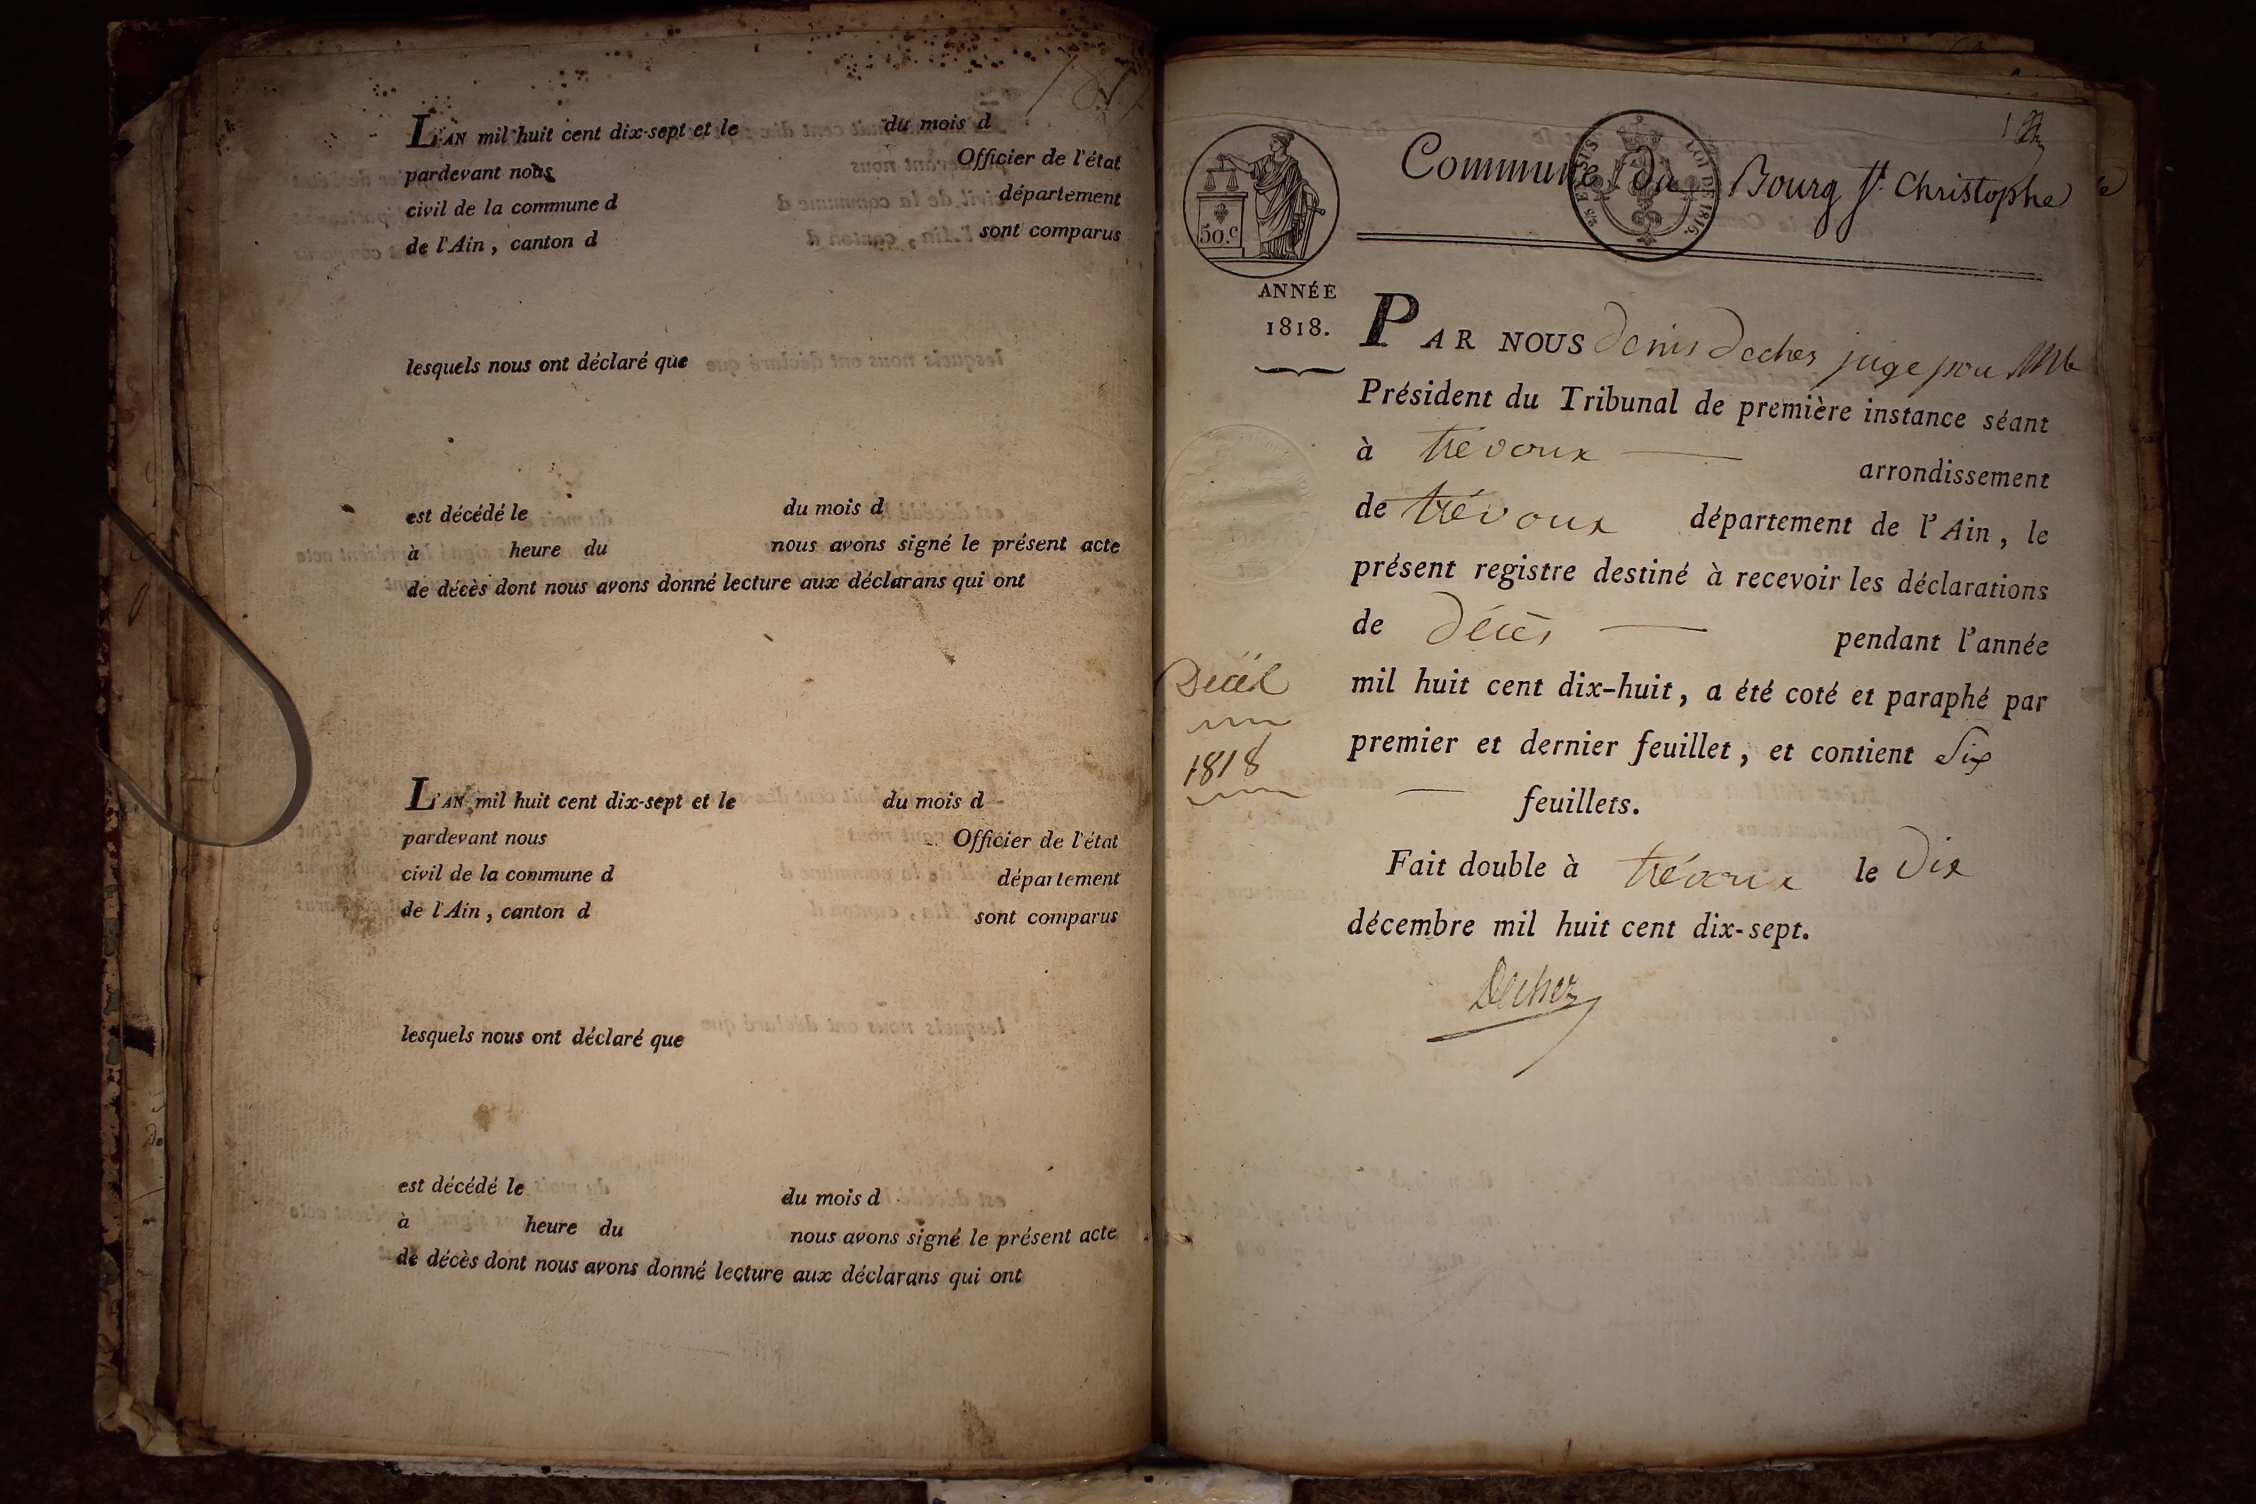 L'AN mil huit cent dix-sept et le du mois d
pardevant nous Officier de l'état
civil de la commune d département
de l'Ain, canton d sont comparus
lesquels nous ont déclaré que
est décédé le du mois d
à heure du nous avons signé le présent acte
de décès dont nous avons donné lecture aux déclarans qui ont
L'AN mil huit cent dix-sept et le du mois d
pardevant nous Officier de l'état
civil de la commune d département
de l'Ain, canton d sont comparus
lesquels nous ont déclaré que
est décédé le du mois d
à heure du nous avons signé le présent acte
de décès dont nous avons donné lecture aux déclarans qui ont
1
Commune du Bourg St. Christophe
50.c
LOI DE 1816.
ANNÉE
1818.
PAR NOUS denis Decher juge pour
Président du Tribunal de première instance séant
à trévoux arrondissement
de trévoux département de l'Ain, le
présent registre destiné à recevoir les déclarations
de décès pendant l'année
mil huit cent dix-huit, a été coté et paraphé par
premier et dernier feuillet, et contient Six
feuillets.
Fait double à trévoux le dix
décembre mil huit cent dix-sept.
Decher
1818